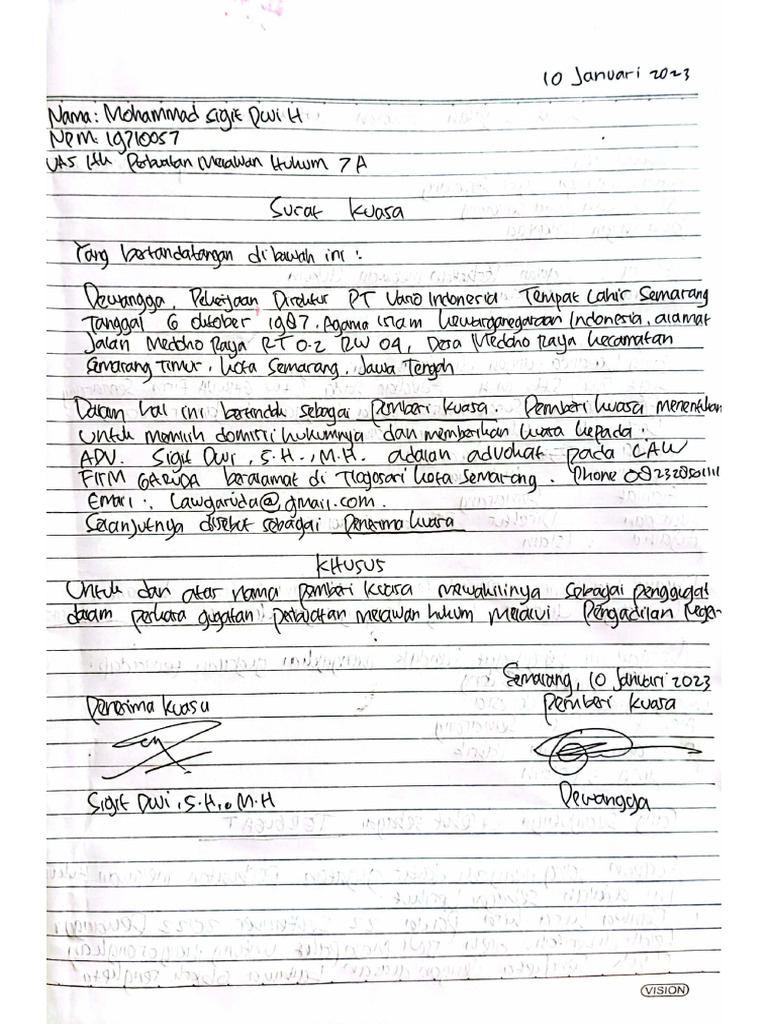 10 Januari 2023
Nama: Mohammad Sigit Dwi H
NPM: 19710057
UAS Perbuatan Melawan Hukum 7A
Surat Kuasa
Yang bertandatangan dibawah ini :
Dewangga, Pekerjaan Direktur PT Vano Indonesia Tempat Lahir Semarang
Tanggal 6 Oktober 1987. Agama Islam Kewarganegaraan Indonesia, alamat
Jalan Medoho Raya RT 02 RW 04, Desa Medoho Raya Kecamatan
Semarang Timur, Kota Semarang, Jawa Tengah
Dalam hal ini bertindak sebagai Pemberi Kuasa. Pemberi Kuasa menentukan
Untuk memilih domisili hukumnya dan memberikan Kuasa kepada.
ADV. Sigit Dwi, S.H., M.H. adalah advokat pada LAW
FIRM GARUDA beralamat di Tlogosari Kota Semarang. Phone
Email : Lawgaruda@gmail.com.
Selanjutnya disebut sebagai Penerima Kuasa
KHUSUS
Untuk dan atas nama pemberi kuasa mewakilinya sebagai penggugat
dalam perkara gugatan perbuatan melawan hukum melalui Pengadilan Neger-
Semarang, 10 Januari 2023
Penerima Kuasa Pemberi Kuasa
Sigit Dwi, S.H., M.H Dewangga
VISION